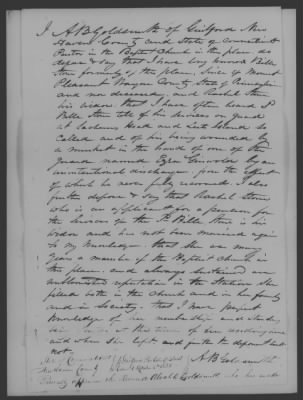 I A B Goldsmith of Guilford New
Haven County and State of Connecticut
Pastor in the Baptist Church in this place do
depose & say that I have long known Bille
Stone formerly of this place, since of Mount
Pleasant Wayne County State of Pennsyl
and now deceased, and Rachel Stone
his widow. that I have often heard Sd
Bille Stone tell of his services on guard
at Sachems Head and Leets Island so
called and of his being wounded by
a musket in the hands of one of the
Guard named Ezra by an
unintentional discharge, from the effect
of which he never fully recovered. I also
further depose & say that Rachel Stone
who is an applicant for a pension for
the services of the Sd Bille Stone is his
widow and has not been married again
to my knowledge. that she was many
years a member of the Baptist Church in
this place. and always sustained an
unblemished reputation in the station she
filled both in the church and in her family
and in society. that I have perfect
knowledge of her membership and standing
at the time of her
and when she left and further the deponent saith
not.
A B Goldsmith
State of Connecticut
New Haven County